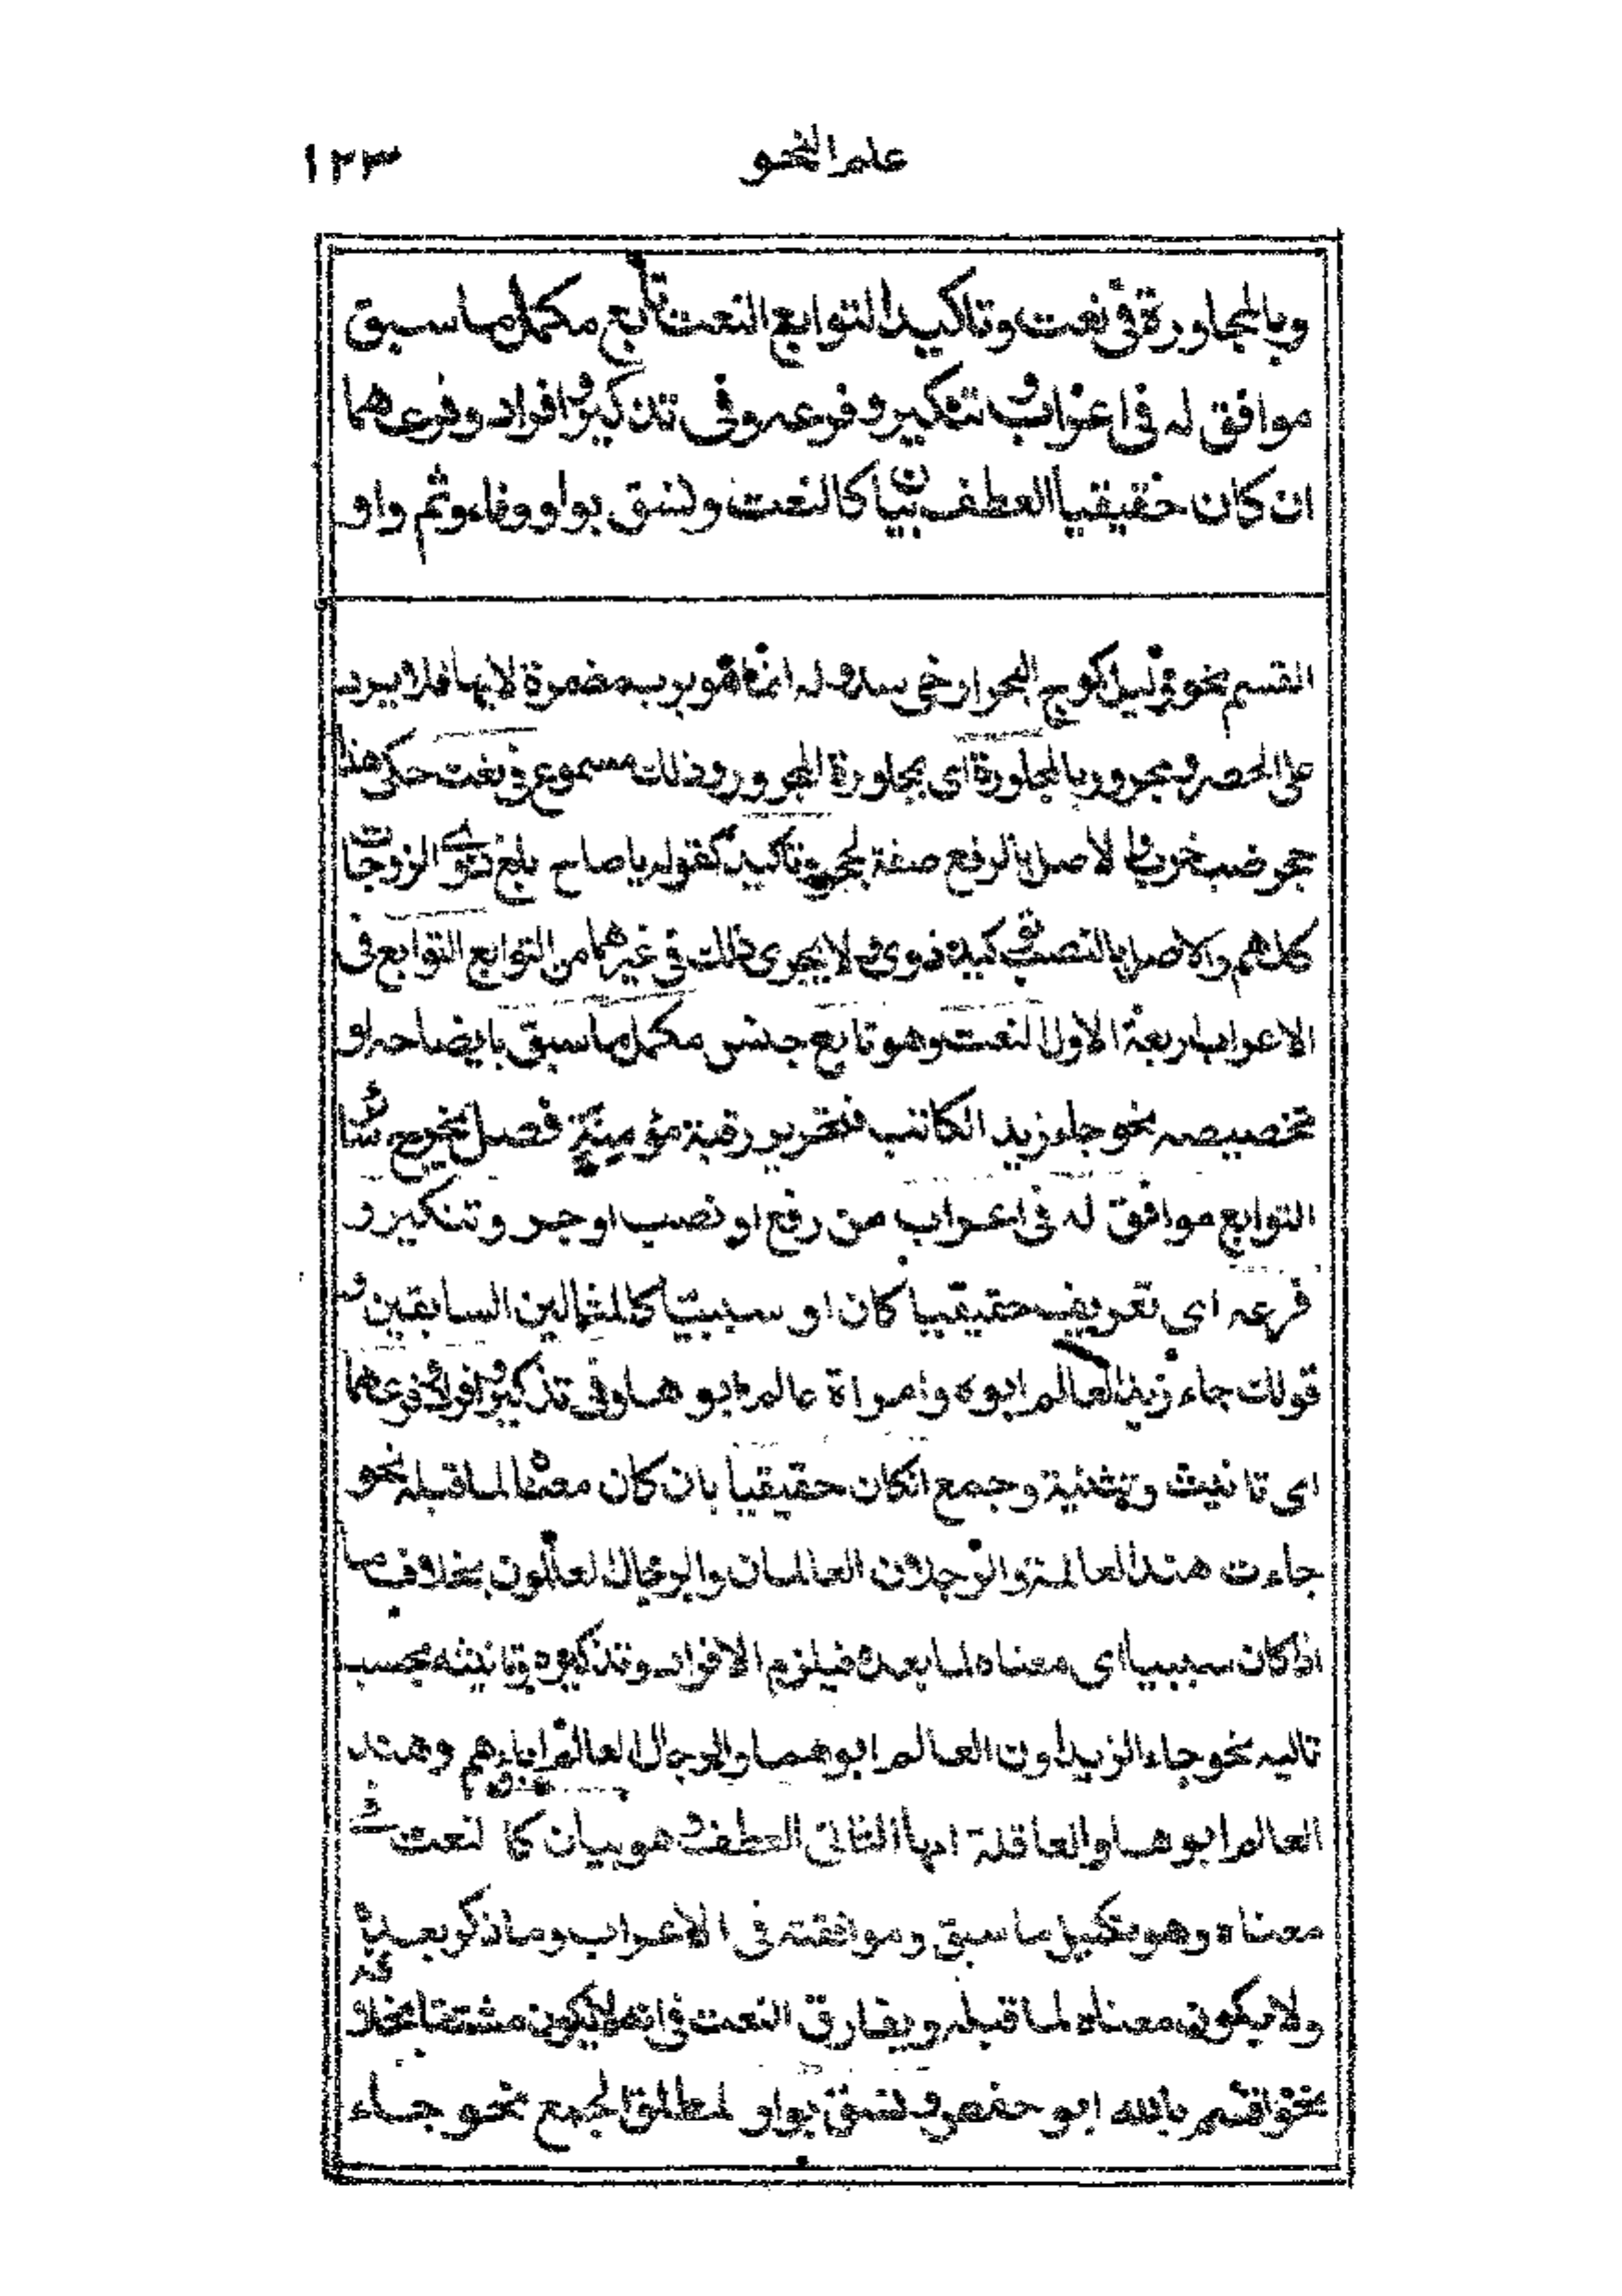 علم النحو ١٢٣
وبالمجاورة في نعت وتاكيد التوابع النعت تابع مكمل ما سبق
موافق له في اعراب وتنكير وفرعه وفي تذكير وافراد وفرعهما
ان كان حقيقيا العطف بيان كالنعت ونسق بواو وفاء وثم واو
القسم نحو وليل كموج البحر ارخى سدوله انما هو برب مضمرة لا بها فلا يرد
على الحصر ومجرور بالمجاورة اي مجاورة المجرور وذلك مسموع في نعت حكي هذا
جحر ضب خرب والاصل بالرفع صفة لجحر وتاكيد كقوله يا صاح بلغ ذوي الزوجات
كلهم والاصل بالنصب تاكيد ذوي ولا يجري ذلك في غيرهما من التوابع التوابع في
الاعراب اربعة الاول النعت وهو تابع جنس مكمل ما سبق بايضاحه او
تخصيصه نحو جاء زيد الكاتب فتحرير رقبة مؤمنة فصل يخرج سائر
التوابع موافق له في اعراب من رفع او نصب او جر وتنكير و
فرعه اي تعريف حقيقيا كان او سببيا كالمثالين السابقين و
قولك جاء زيد العالم ابوه وامراة عالم ابوها وفي تذكير وافراد وفرعهما
اي تانيث وتثنية وجمع انكان حقيقيا بان كان معناه لما قبله نحو
جاءت هند العالمة والرجلان العالمان والرجال العالمون بخلاف ما
اذا كان سببيا اي معناه لما بعده فيلزم الافراد وتذكيره وتانيثه بحسب
تاليه نحو جاء الزيداون العالم ابوهما والرجال العالم اباؤهم وهند
العالم ابوها والعاقلة امها الثاني العطف وهو بيان كالنعت في
معناه وهو تكميل ما سبق وموافقته في الاعراب وما ذكر بعده
ولا يكون معناه لما قبله ويفارق النعت في انه لا يكون مشتقا بخلافه
نحو اقسم بالله ابو حفص ونسق بواو لمطلق الجمع نحو جاء